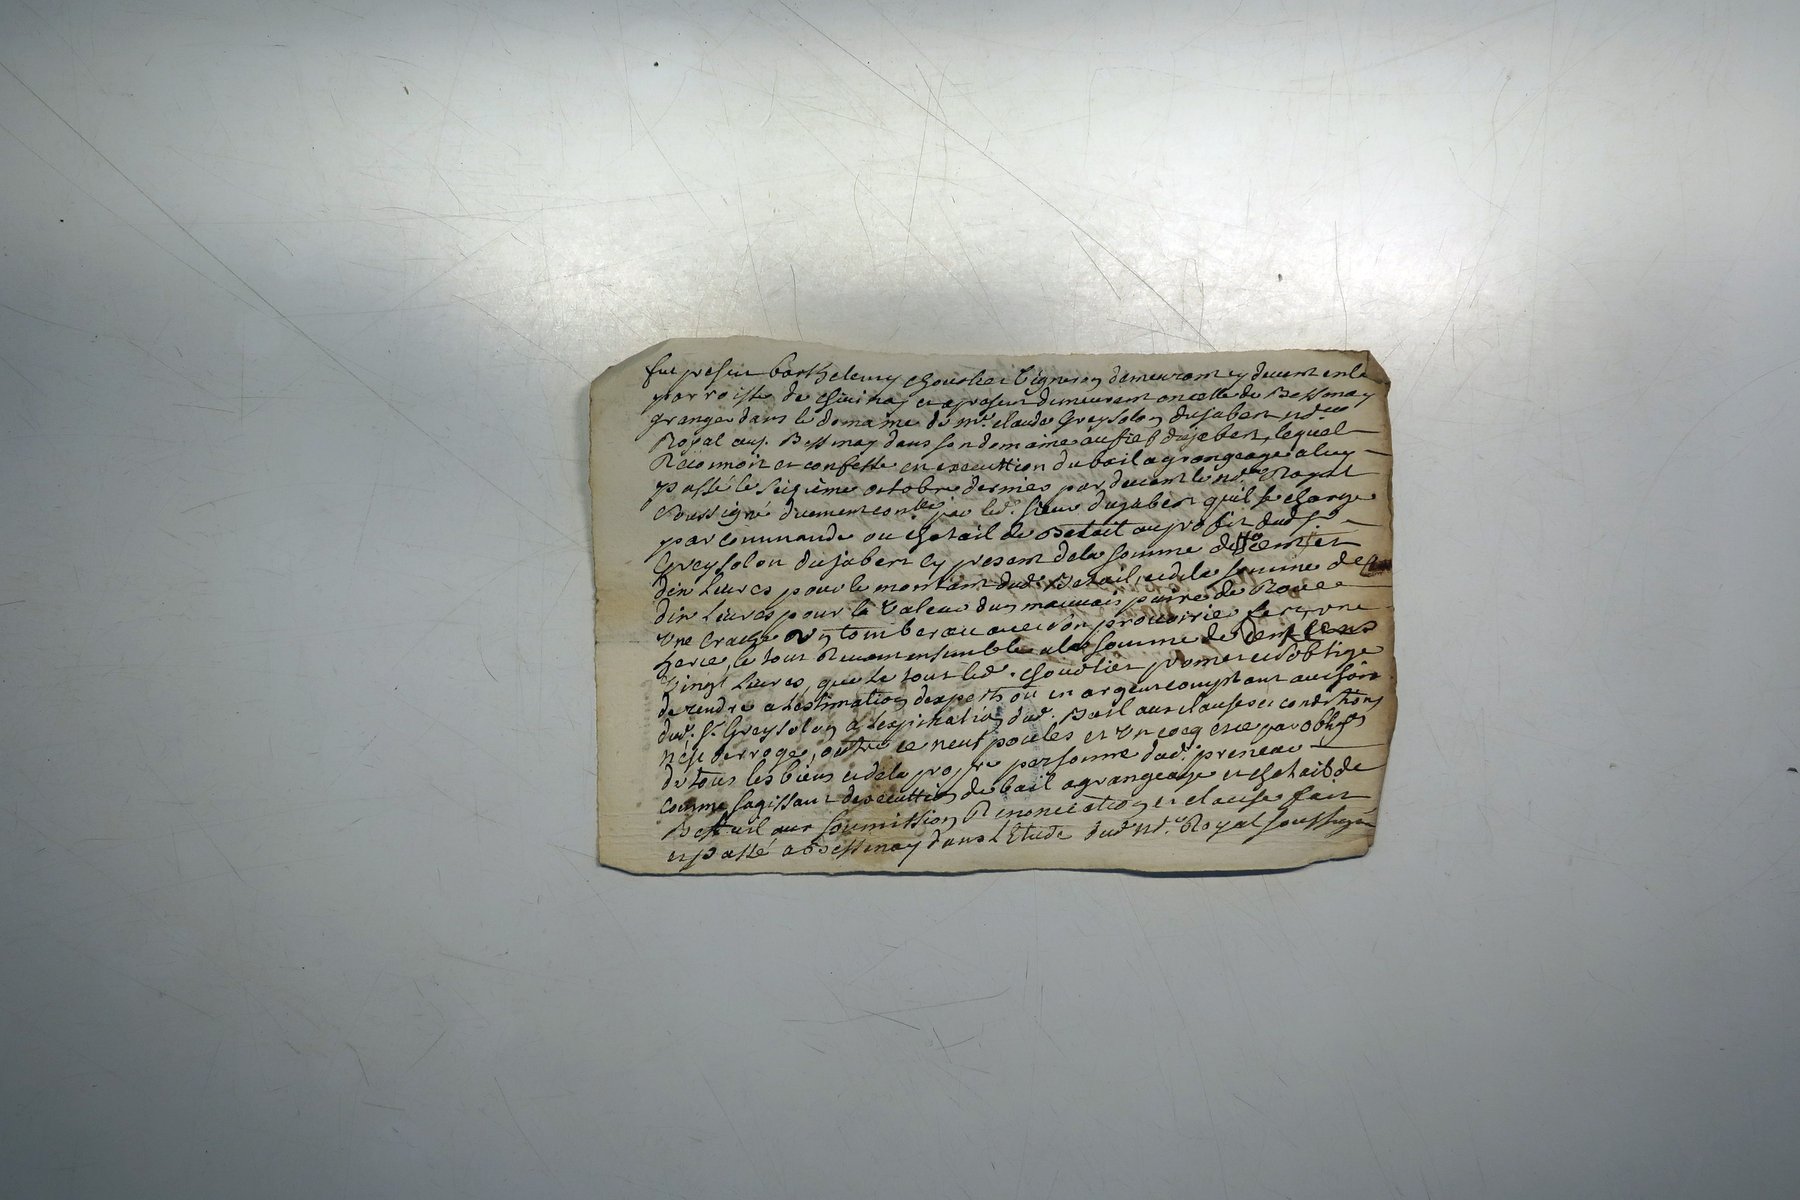 fut present barthelemy chovelier Vigneron demeurant cy devent en la
parroisse de chivinay et apresent demeurant en celle de Bessenay
granger dans le domaine de mr. claude Greysolon dujabert nore
Royal auy. Bessenay dans son domaine au fief dujabert, lequel
Reconnoit et confesse en executtion du bail a grangeage a luy
passé le seizieme octobre dernier par devent le nore Royal
soussigné duement conllé par led. sieur dujabert qu'il se charge
par commande ou chetail de Betail au profit dud. sr
Greysolon dujabert cy present de la somme de cent et
dix Livres pour le montant dud. Betail, et de la somme de
dix Livres pour la Valeur d'un mauvais paire de Roues
Une Un tombereau avec son
le tout Revenant ensemble a la somme de cent
vingt Livres, que le tout led. chovelier promet et s'oblige
de rendre a lestimation dexperts ou en argent comptant au choix
dud. sr. Greysolon a lexpiration dud. Bail aux clauses et conditions
nest derroge, outre ce neuf poules et Un coq et ce par oblig.
de tous les biens et de la propre personne dud. preneur
comme sagissant dexecuttion de bail a grangeage et chetail de
Bestail aux soumission Renonciation et clause fait
et passé a Bessenay dans L'Etude dud. nore Royal soussigné